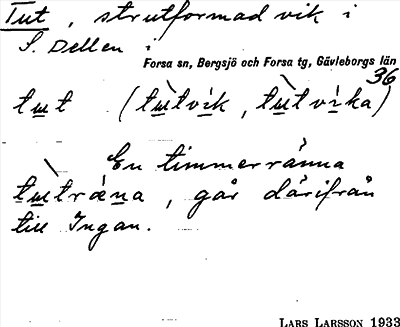 Tut, strutformad vik i
S. Dellen i
Forsa sn, Bergsjö och Forsa tg, Gävleborgs län
36
tut (tùtvik, tùtvika)
En timmerränna
tùtræna, går därifrån
till Ingan.
LARS LARSSON 1933